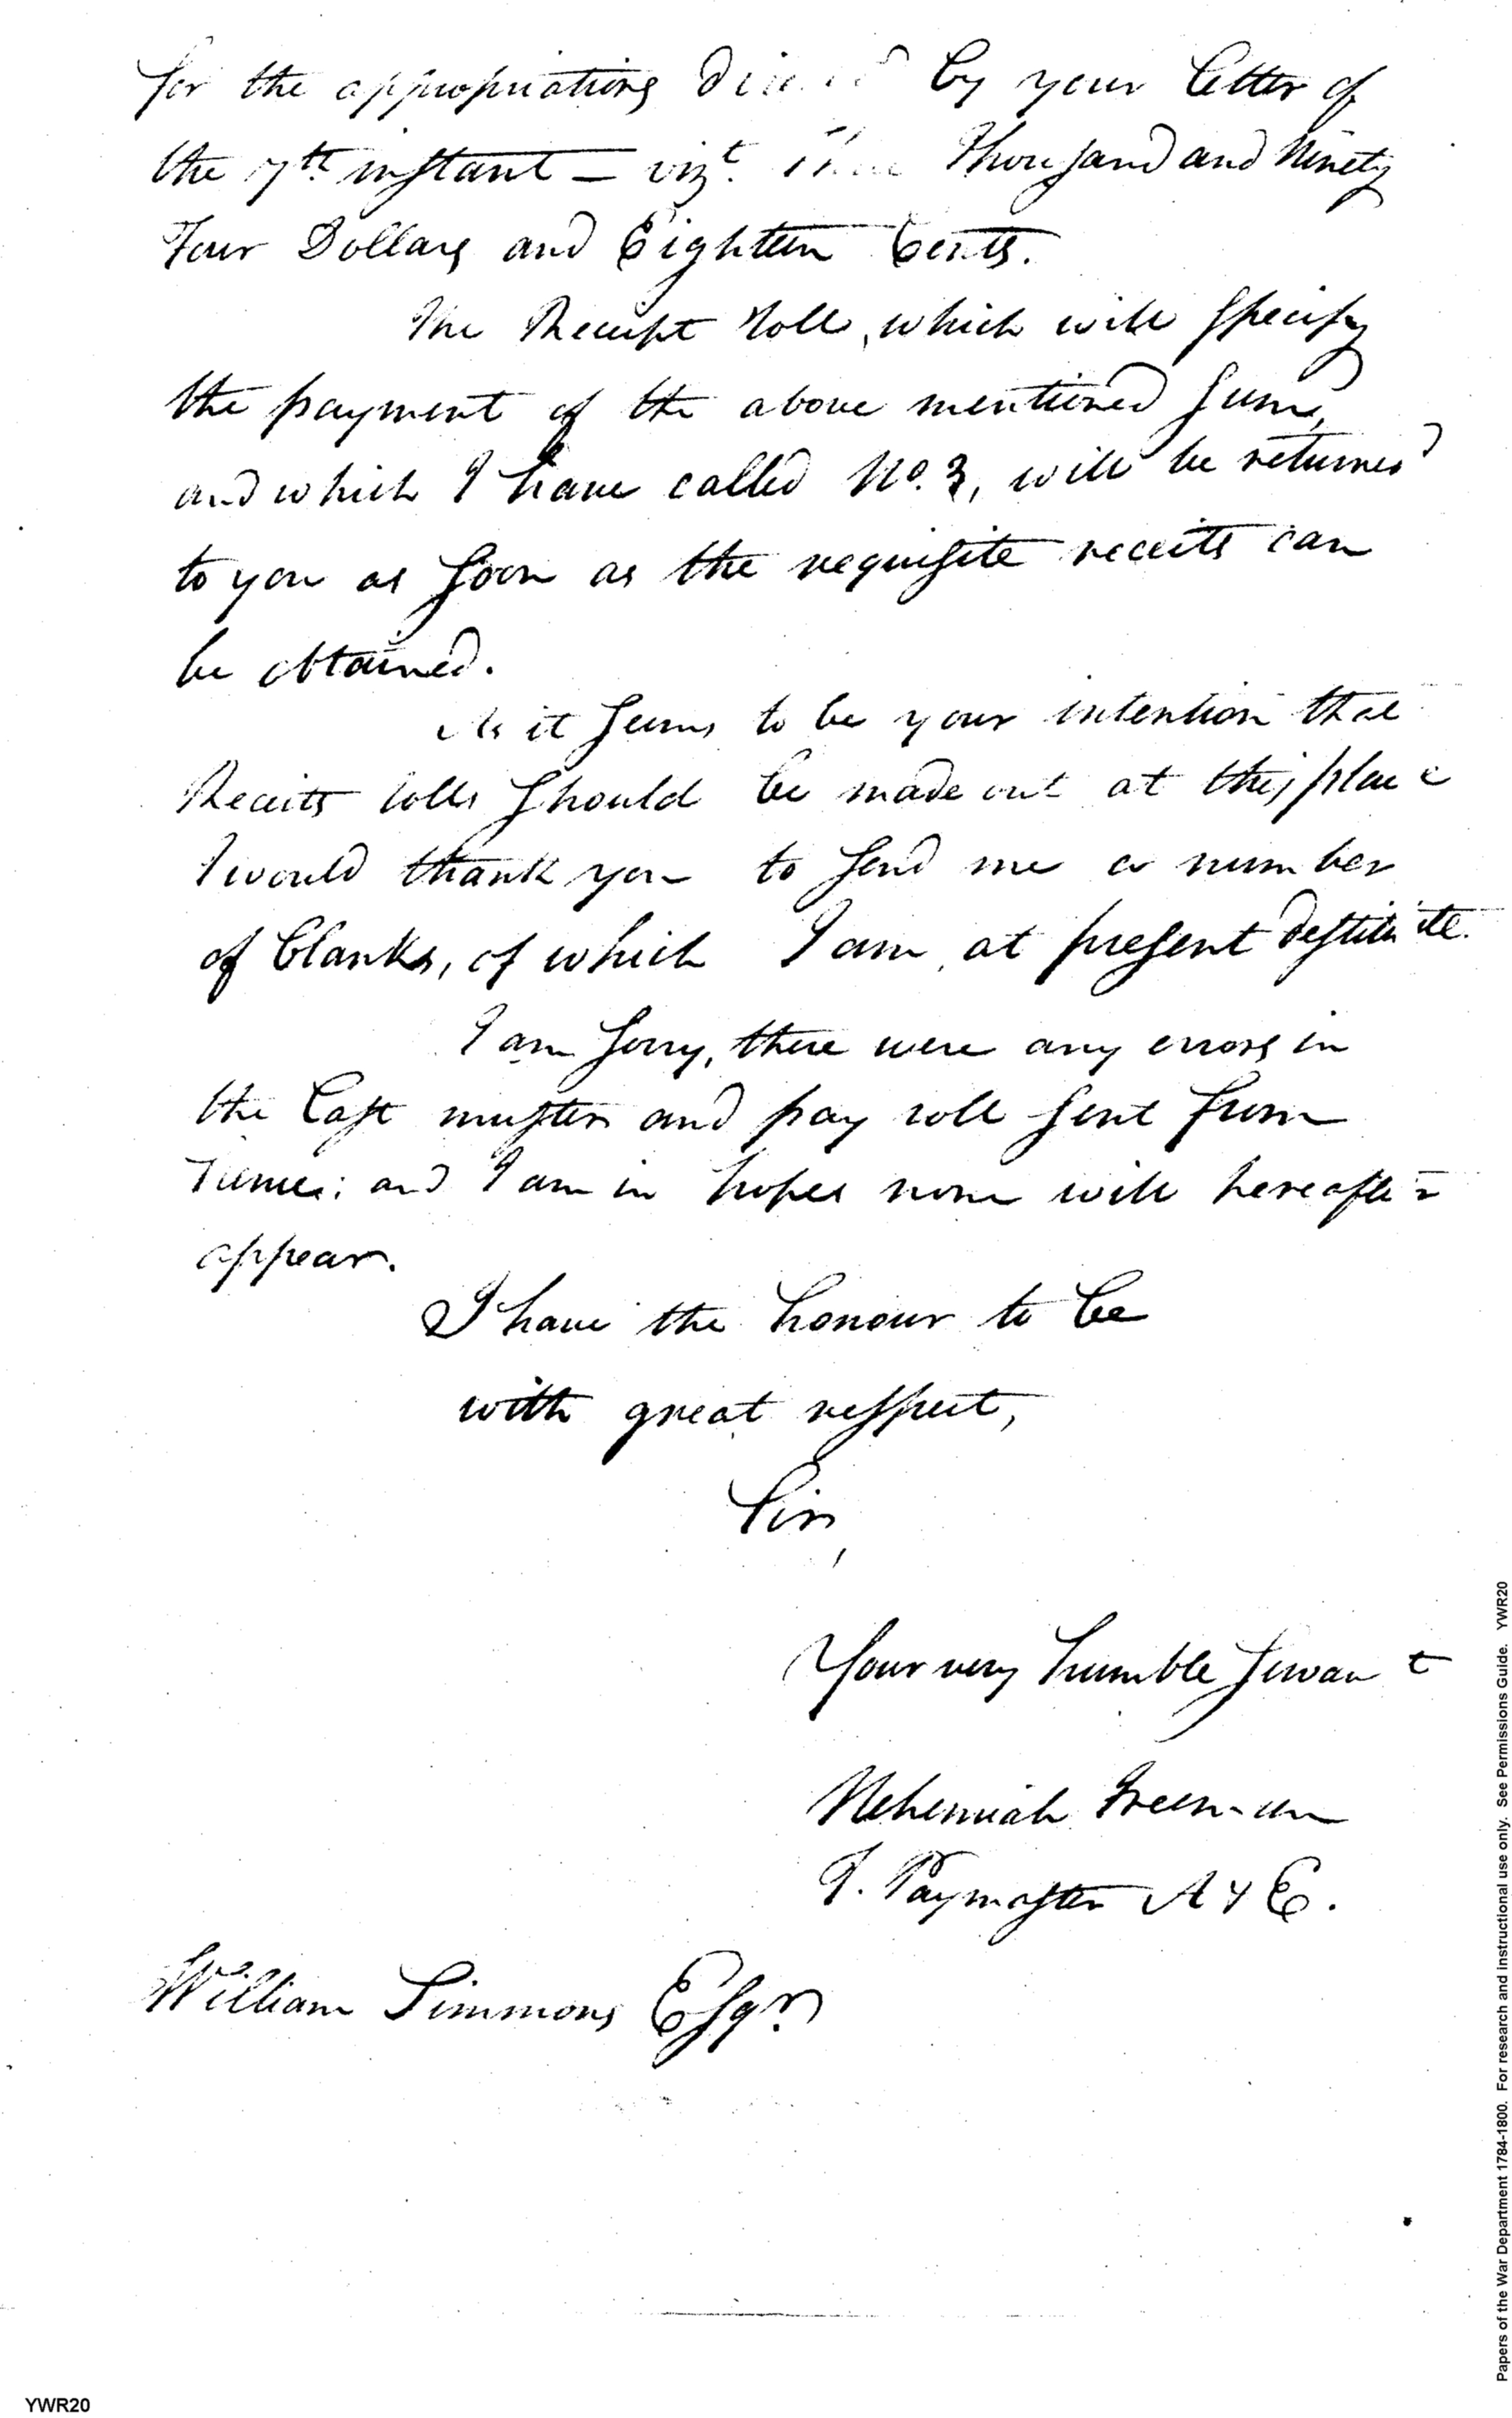 for the appropriations by your letter of
the 7th instant — vizt. Thousand and Ninety
Four Dollars and Eighteen Cents.
The Receipt roll, which will specify
the payment of the above mentioned sum,
and which I have called No. 3, will be returned
to you as soon as the requisite receits can
be obtained.
As it seems to be your intention that
Receits rolls should be made out at this place
I would thank you to send me a number
of blanks, of which I am at present destitute.
I am sorry, there were any errors in
the last muster and pay roll sent from
and I am in hopes none will hereafter
appear.
I have the honour to be
with great respect,
Sir,
Your very humble servant
Nehemiah Freeman
Paymaster A & E.
William Simmons Esqr.
YWR20
Papers of the War Department 1784-1800. For research and instructional use only. See Permissions Guide. YWR20